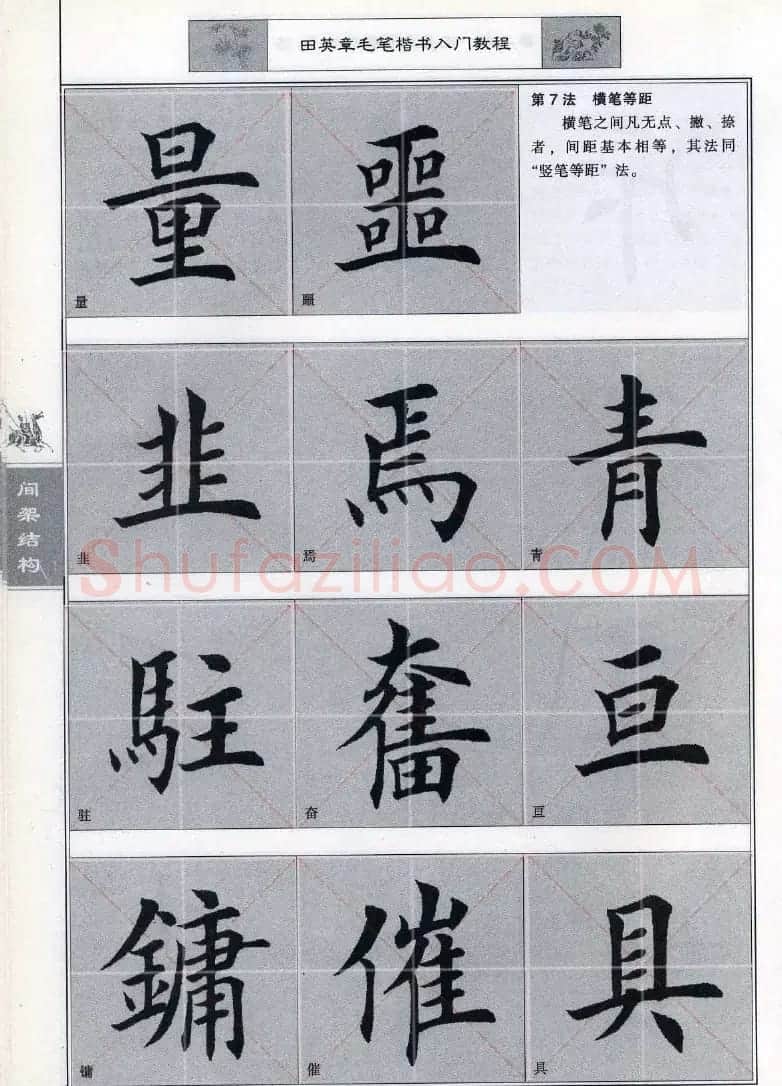 田英章毛笔楷书入门教程
第7法 横笔等距
横笔之间凡无点、撇、捺
者，间距基本相等，其法同
“竖笔等距”法。
量 噩
量 噩
韭 焉 青
韭 焉 青
駐 奮 亘
驻 奋 亘
鏞 催 具
镛 催 具
间架结构
Shufaziliao.COM